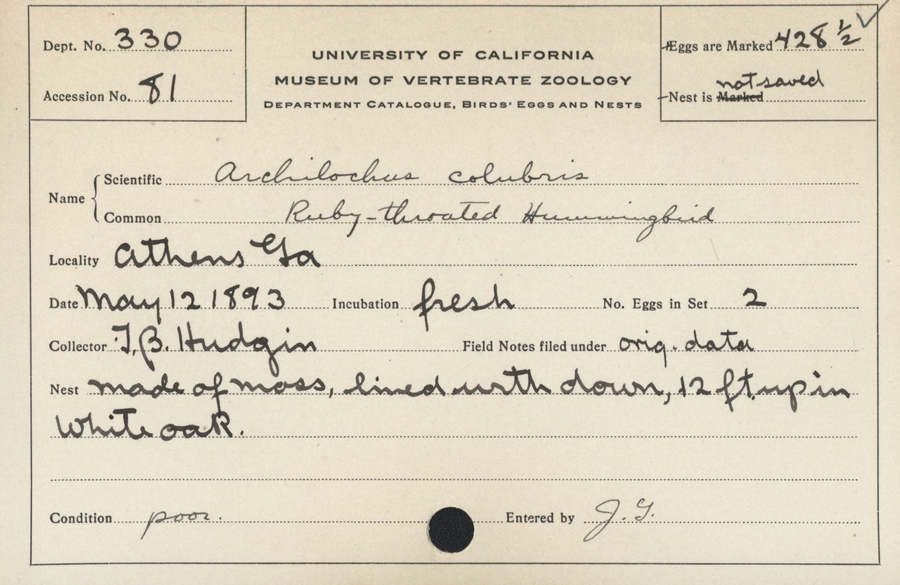 Dept. No. 330
Accession No. 81
UNIVERSITY OF CALIFORNIA
MUSEUM OF VERTEBRATE ZOOLOGY
DEPARTMENT CATALOGUE, BIRDS' EGGS AND NESTS
Eggs are Marked 428 ½
not saved
Nest is Marked
Name
Scientific Archilochus colubris
Common Ruby-throated Hummingbird
Locality Athens Ga
Date May 12 1893 Incubation fresh No. Eggs in Set 2
Collector T.B. Hudgin Field Notes filed under orig. data
Nest made of moss, lined with down, 12 ft up in
White oak.
Condition poor. Entered by J. G.